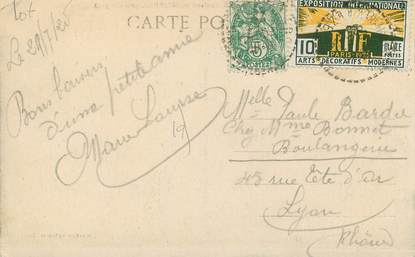 CARTE PO
EXPOSITION INTERNATIONALE
10c
RF
PARIS-1925
POSTES
ARTS DECORATIFS MODERNES
5
Le 21/7/25
Bons baisers
d'une petite amie
Marie Louise
Melle Paule Bardu
Chez Mme Bonnet
Boulangerie
45 rue Tête d'or
Lyon
Rhône